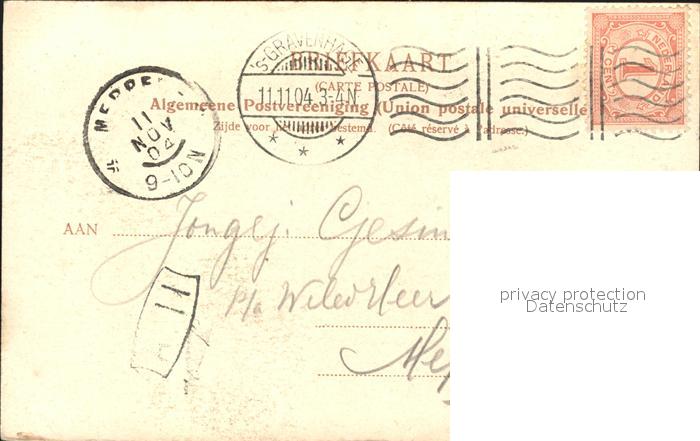 BRIEFKAART
(CARTE POSTALE)
Algemeene Postvereeniging (Union postale universelle)
Zijde voor het adres bestemd. (Côté réservé à l'adresse.)
'S-GRAVENHAGE
11.11.04. 3-4N
* * *
MEPPEL
11
NOV
04
9-10N
NEDERLAND
1
CENT
AAN Jongej.
p/a Weled Heer
Mep
11
privacy protection
Datenschutz